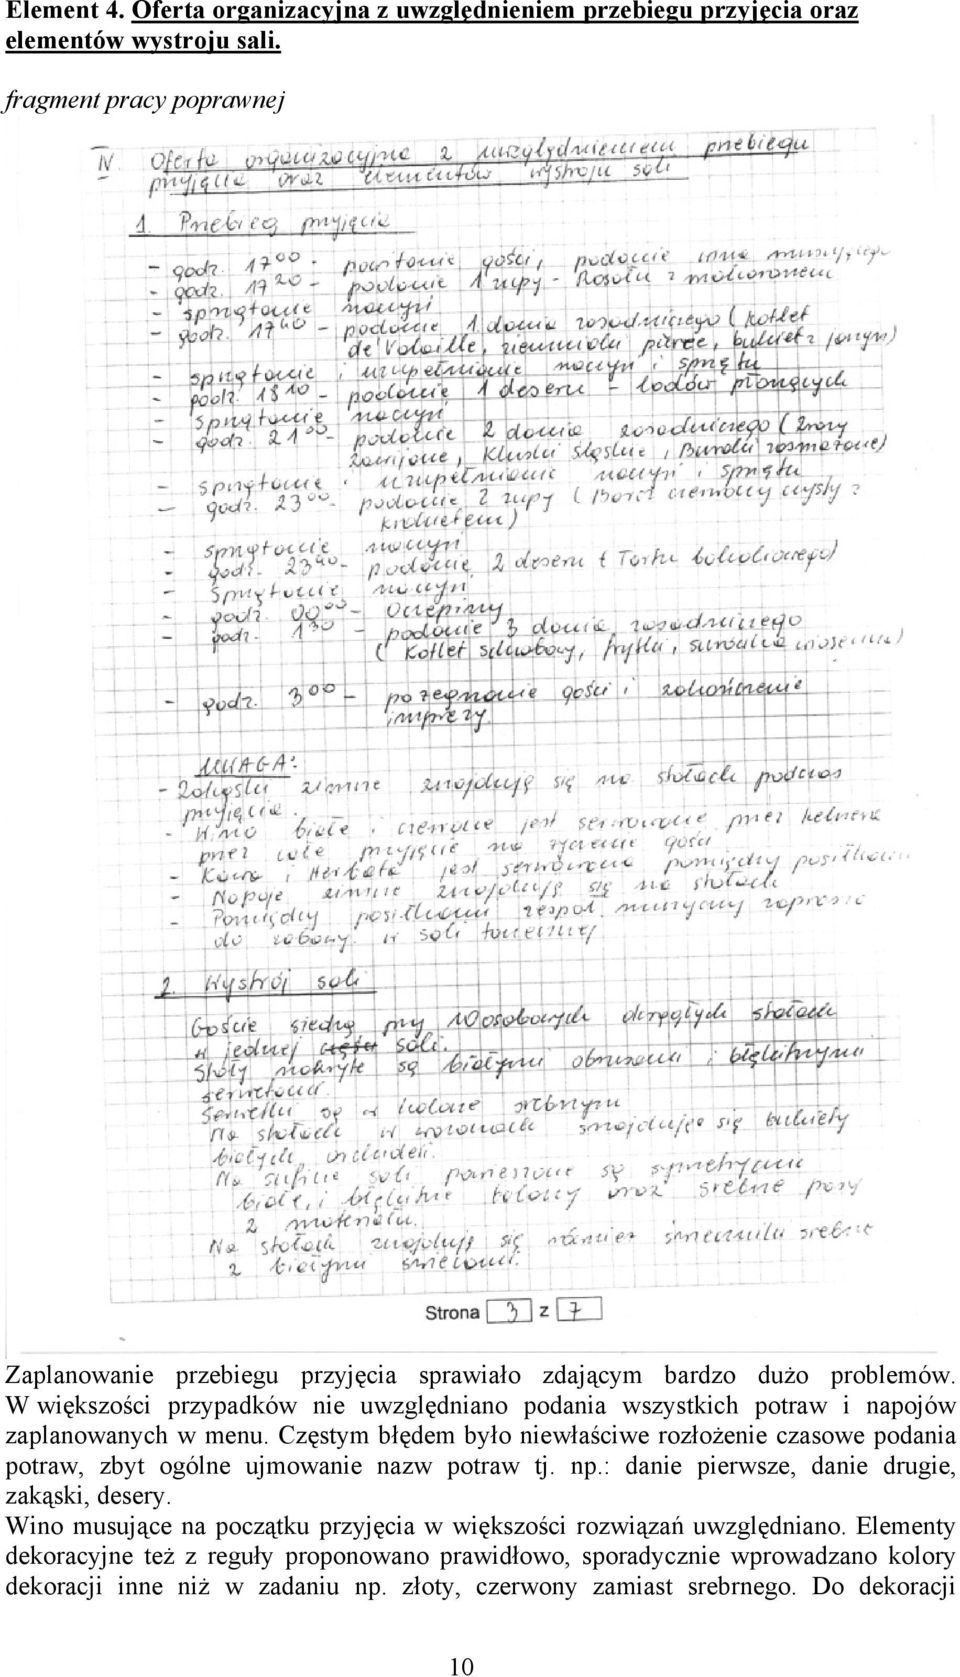 Element 4. Oferta organizacyjna z uwzględnieniem przebiegu przyjęcia oraz
elementów wystroju sali.
fragment pracy poprawnej
IV Oferta organizacyjna z uwzględnieniem przebiegu
przyjęcia oraz elementów wystroju sali
1. Przebieg przyjęcia
- godz. 17⁰⁰ - powitanie gości, podanie wina musującego
- godz. 17²⁰ - podanie 1 zupy - Rosołu z makaronem
- sprzątanie naczyń
- godz. 17⁴⁰ - podanie 1 dania zasadniczego (kotlet
de Volaille, ziemniaki piree, bukiet z jarzyn)
- sprzątanie i uzupełnianie naczyń i sprzętu
- godz. 18¹⁰ - podanie 1 deseru - lodów płonących
- sprzątanie naczyń
- godz. 21⁰⁰ - podanie 2 dania zasadniczego (zrazy
zawijane, kluski śląskie, Buraki zasmażane)
- sprzątanie i uzupełnianie naczyń i sprzętu
- godz. 23⁰⁰ - podanie 2 zupy (Barszcz czerwony czysty z
krokietem)
- sprzątanie naczyń
- godz. 23⁴⁰ - podanie 2 deseru (Tortu bakaliowego)
- sprzątanie naczyń
- godz. 00⁰⁰ - Oczepiny
- godz. 1³⁰ - podanie 3 dania zasadniczego
(kotlet schabowy, frytki, surówka wiosenna)
- godz. 3⁰⁰ - pożegnanie gości i zakończenie
imprezy.
UWAGA:
- Zakąski zimne znajdują się na stołach podczas
przyjęcia.
- Wino białe i czerwone jest serwowane przez kelnera
przez całe przyjęcie na życzenie gości
- Kawa i Herbata jest serwowana pomiędzy posiłkami
- Napoje zimne znajdują się na stołach
- Pomiędzy posiłkami zespół muzyczny zaprasza
do zabawy w sali tanecznej
2. Wystrój sali
Goście siedzą przy 10 osobowych okrągłych stołach
w jednej sali.
Stoły nakryte są białymi obrusami i błękitnymi
serwetami.
Serwetki są w kolorze srebrnym
Na stołach w wazonach znajdują się bukiety
białych orchidei.
Na suficie sali są symetrycznie
białe, i błękitne oraz srebrne pasy
z materiału.
Na stołach znajdują się również świeczniki srebrne
z białymi świecami.
Strona 3 z 7
Zaplanowanie przebiegu przyjęcia sprawiało zdającym bardzo dużo problemów.
W większości przypadków nie uwzględniano podania wszystkich potraw i napojów
zaplanowanych w menu. Częstym błędem było niewłaściwe rozłożenie czasowe podania
potraw, zbyt ogólne ujmowanie nazw potraw tj. np.: danie pierwsze, danie drugie,
zakąski, desery.
Wino musujące na początku przyjęcia w większości rozwiązań uwzględniano. Elementy
dekoracyjne też z reguły proponowano prawidłowo, sporadycznie wprowadzano kolory
dekoracji inne niż w zadaniu np. złoty, czerwony zamiast srebrnego. Do dekoracji
10